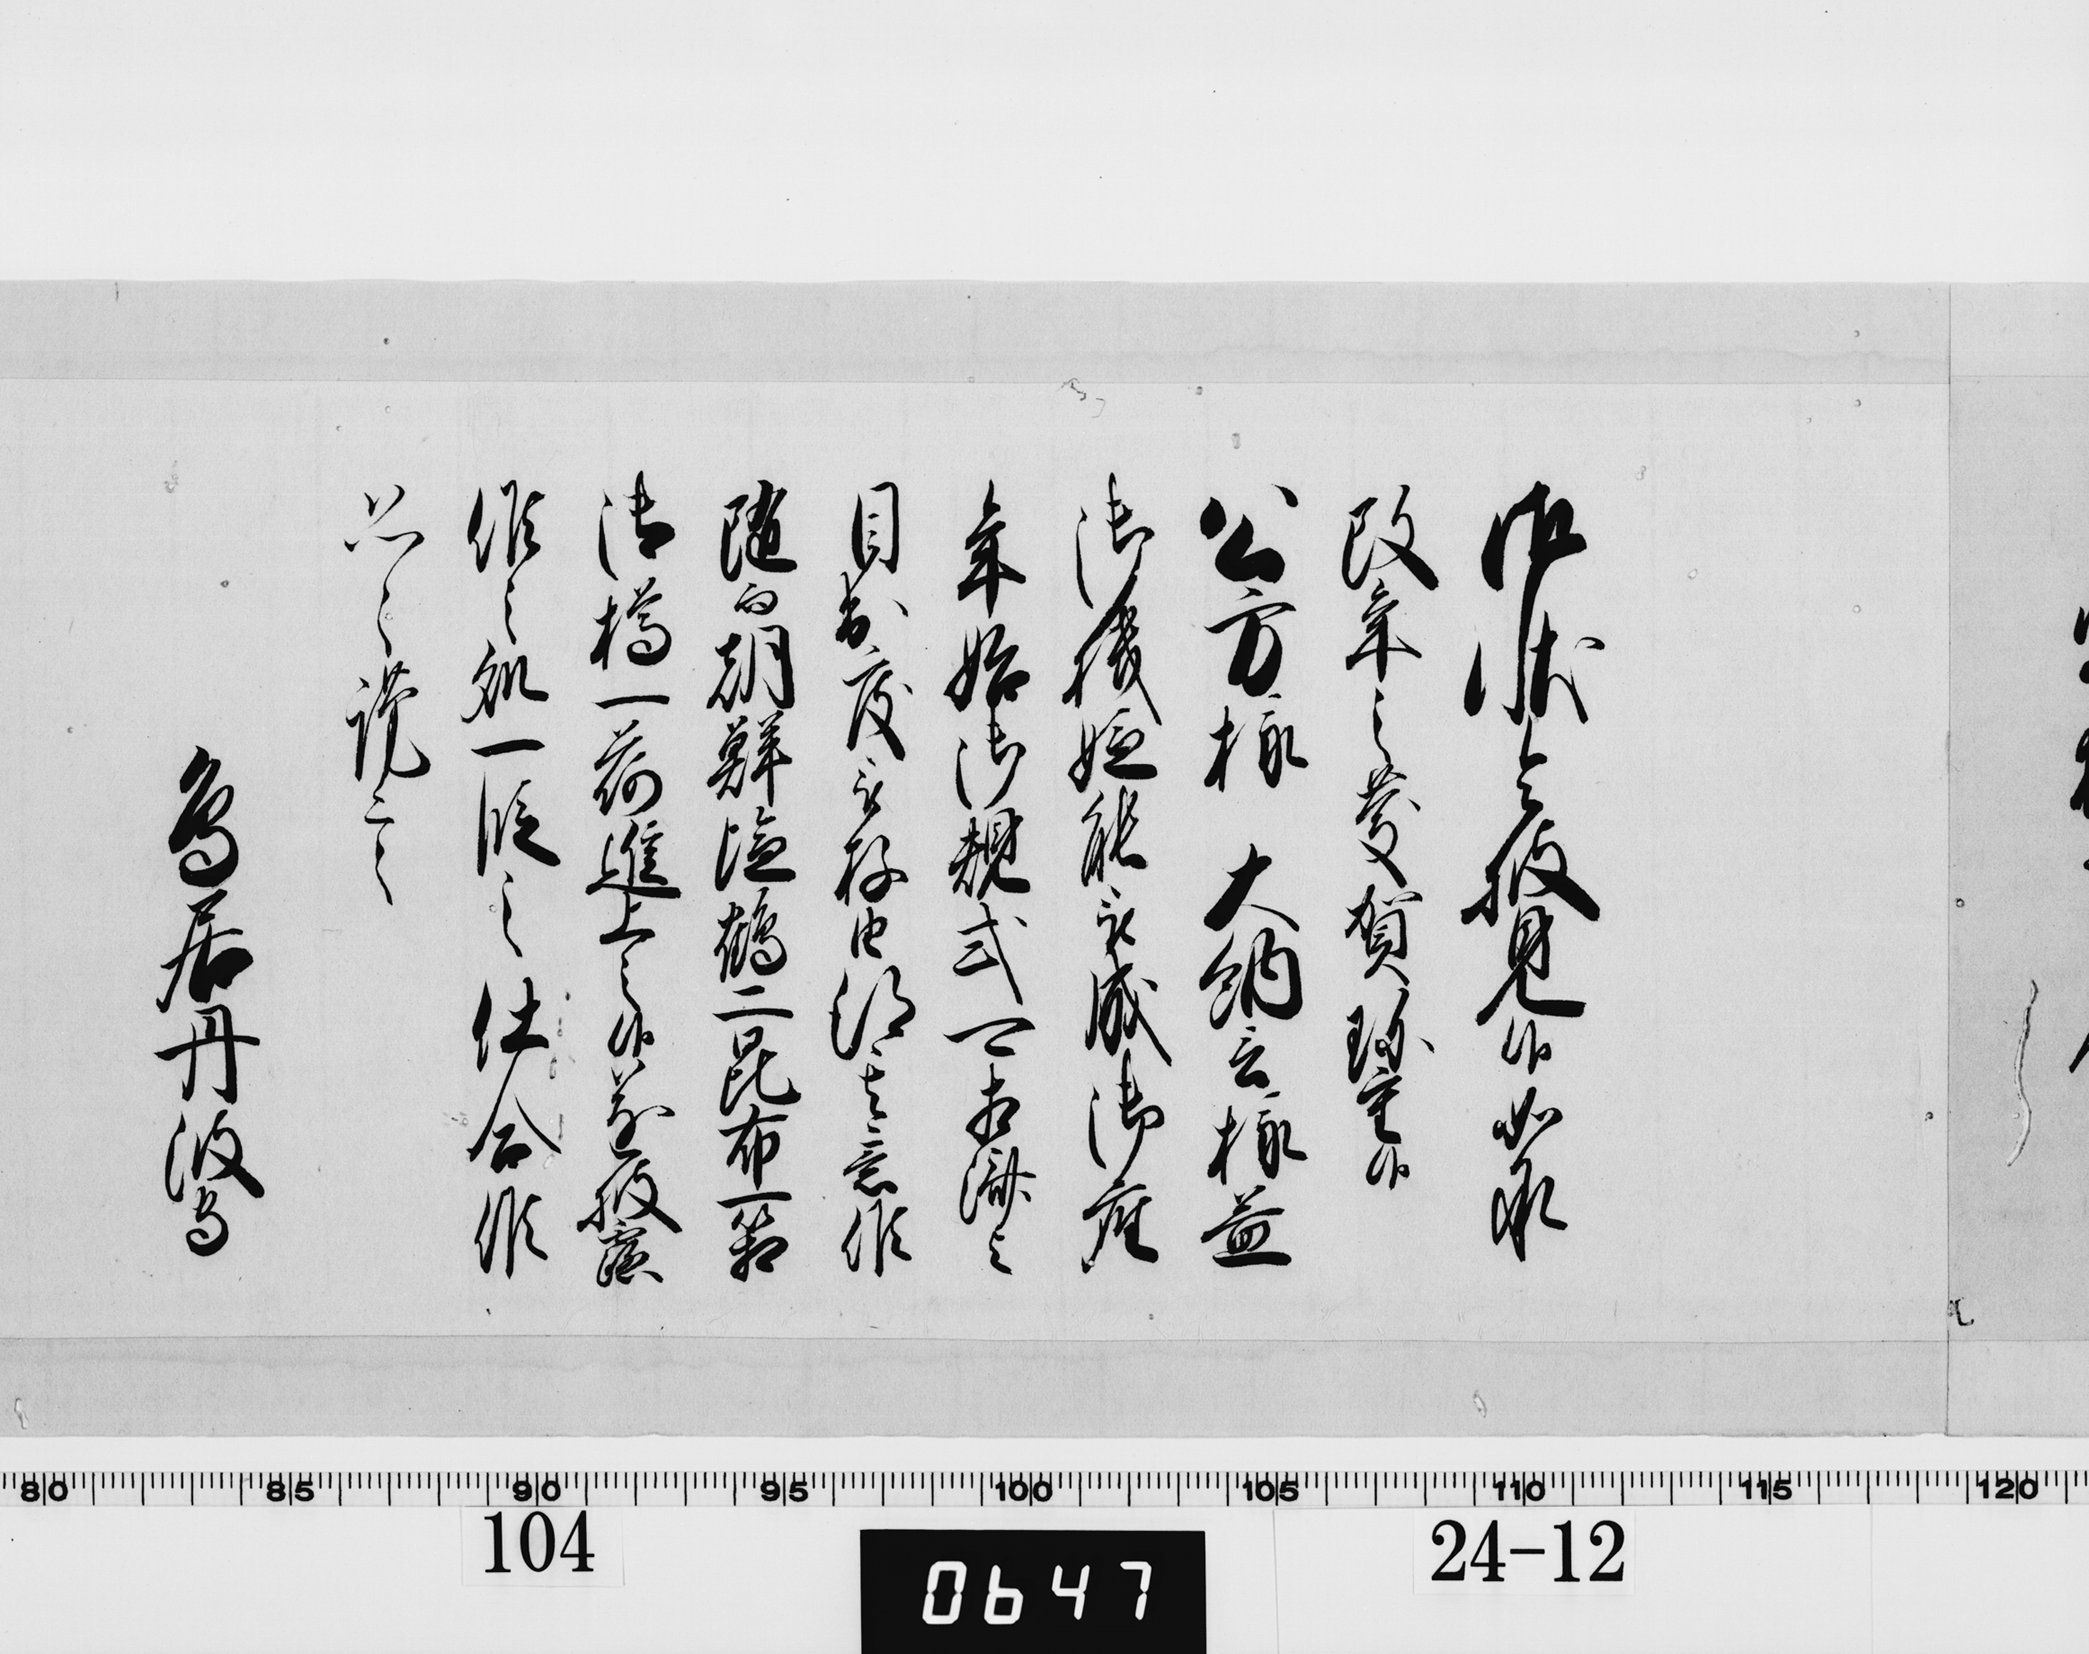 御状令披見候如承
改年之慶賀珍重候
公方様 大納言様益
御機嫌能被成御座
年始御規式可相済之
目出度被存由得其意候
随而朝鮮塩鶴二昆布一箱
御樽一荷進上之候遂披露
候之処一段之仕合候
恐々謹言
鳥居丹波守
80 85 90 95 100 105 110 115 120
104
0647
24-12